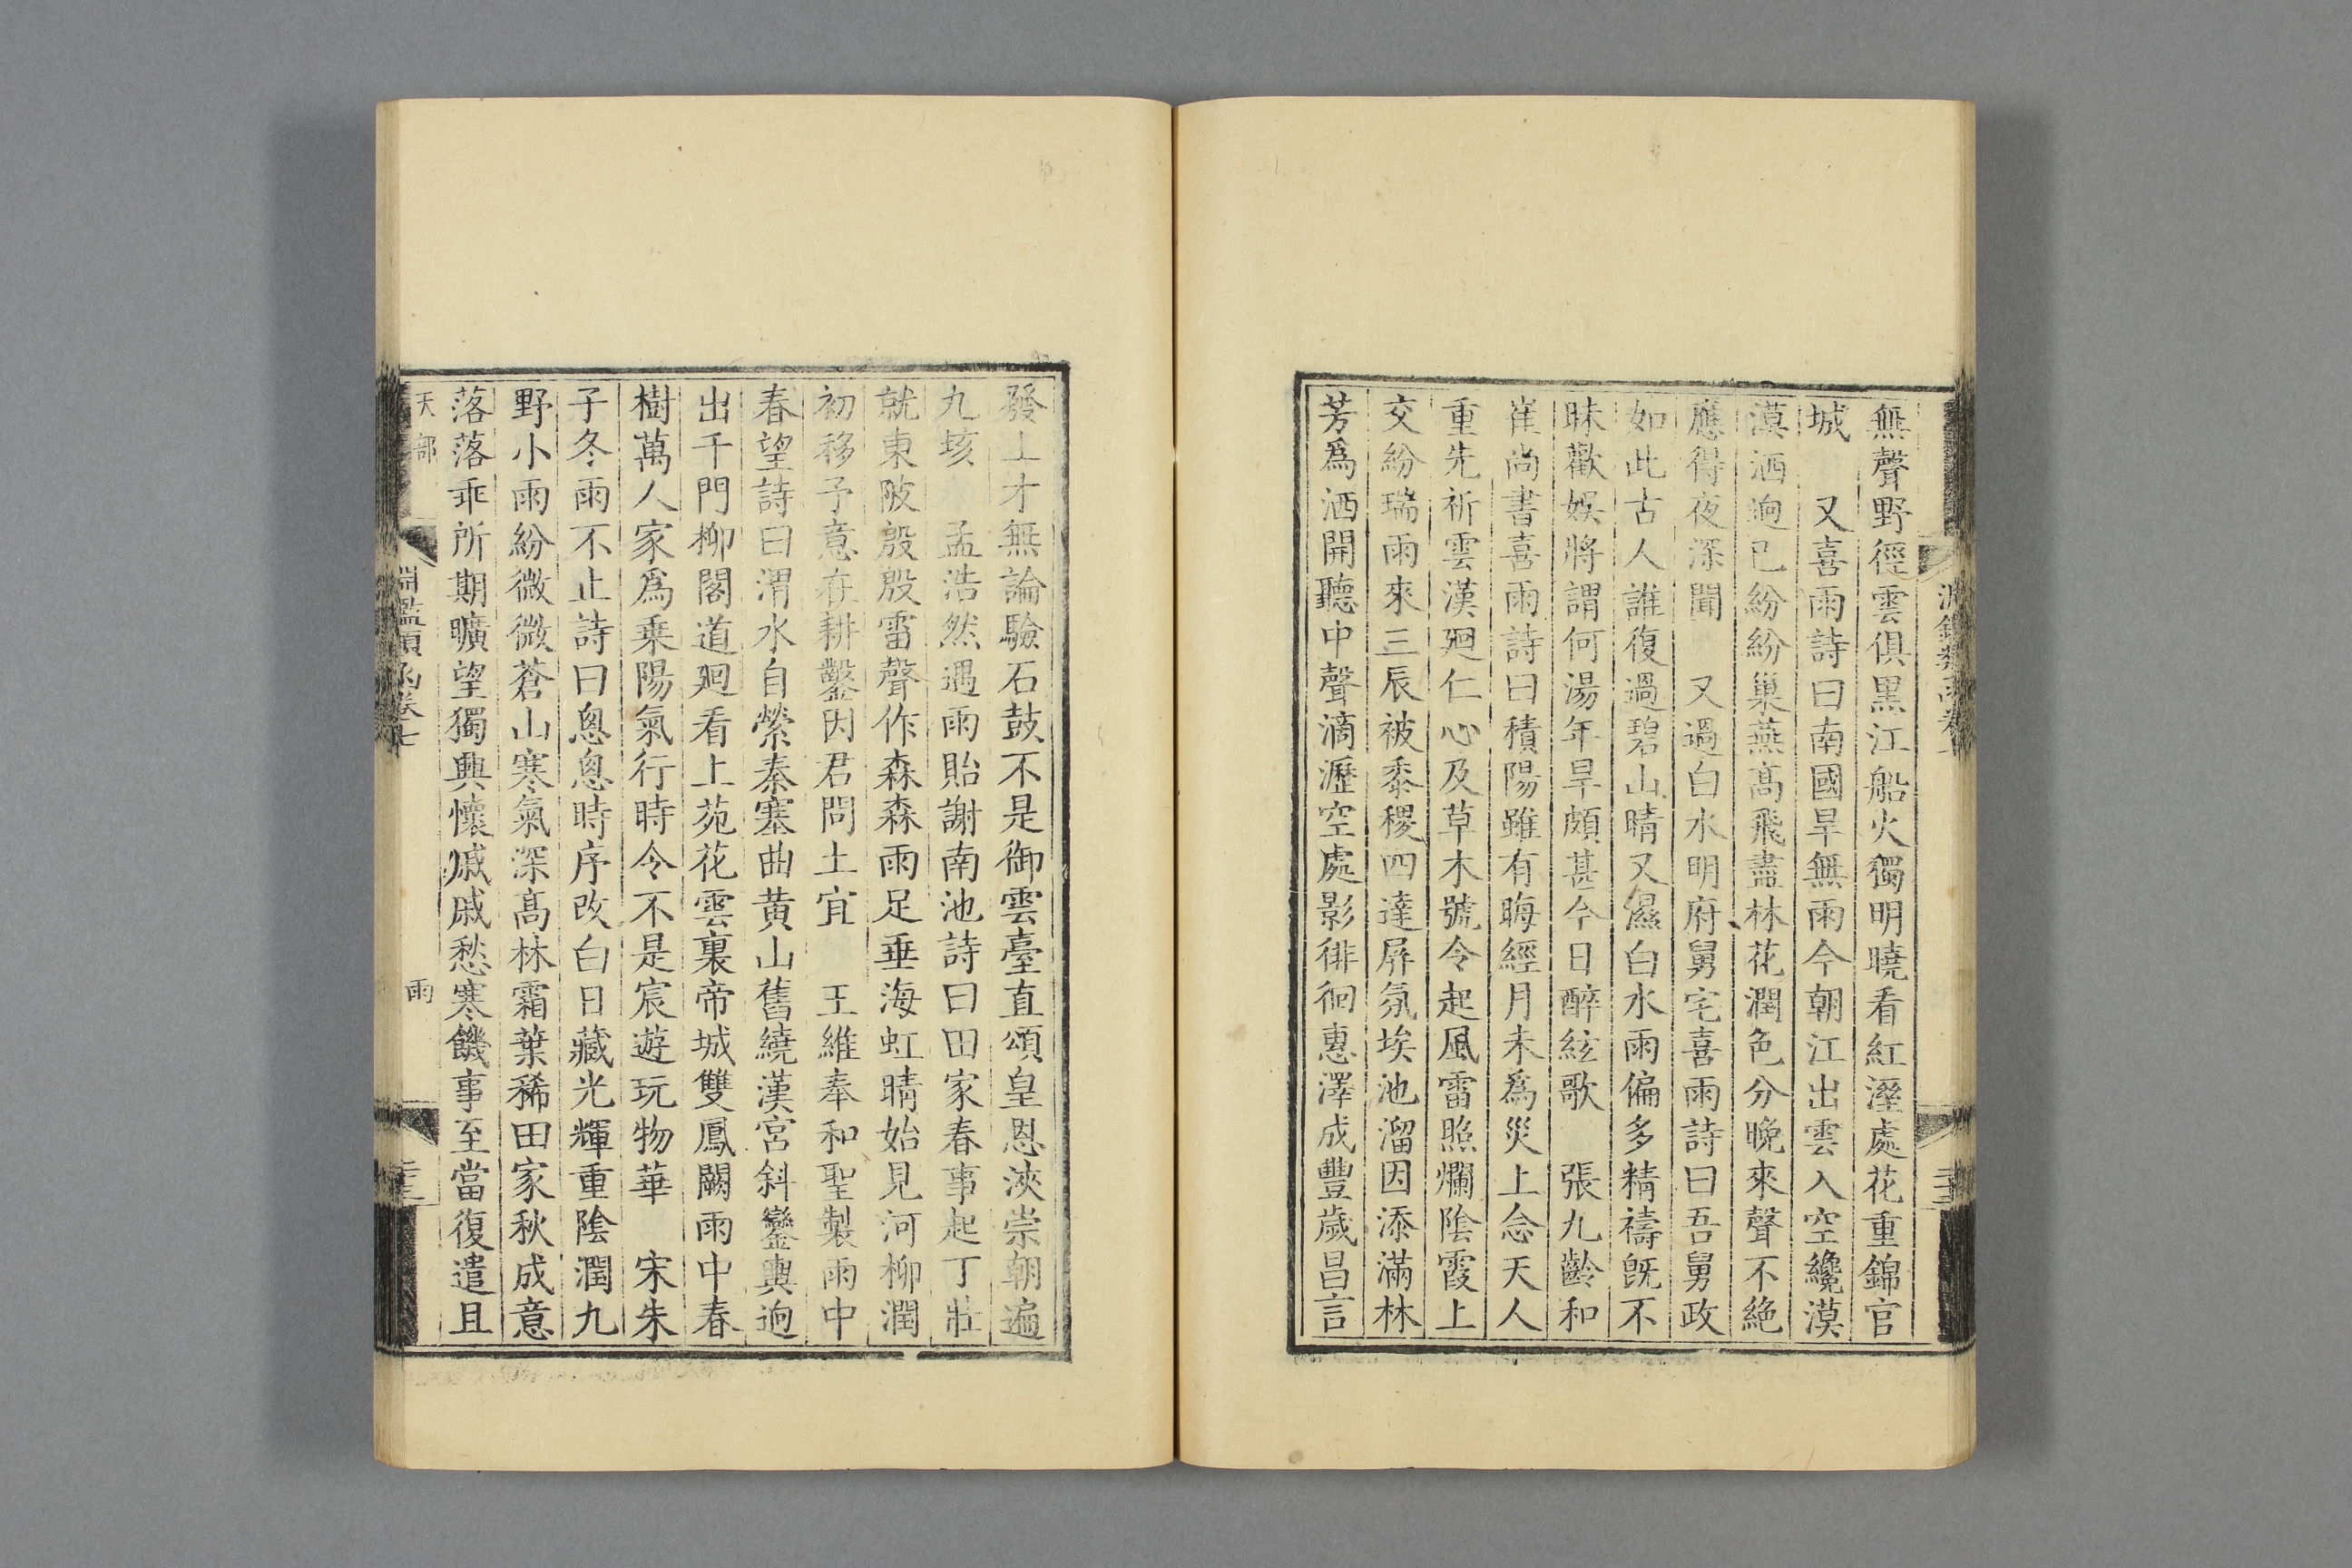 無聲野徑雲俱黑江船火獨明曉看紅溼處花重錦官
城　又喜雨詩曰南國旱無雨今朝江出雲入空纔漠
漠洒逈已紛紛巢燕高飛盡林花潤色分晚來聲不絕
應得夜深聞　又過白水明府舅宅喜雨詩曰吾舅政
如此古人誰復過碧山晴又濕白水雨偏多精禱旣不
昧歡娛將謂何湯年旱頗甚今日醉絃歌　張九齡和
崔尚書喜雨詩曰積陽雖有晦經月未爲災上念天人
重先祈雲漢廻仁心及草木號令起風雷照爛陰霞上
交紛瑞雨來三辰被黍稷四達屏氛埃池溜因添滿林
芳爲洒開聽中聲滴瀝空處影徘徊惠澤成豐歲昌言
發上才無論驗石鼓不是御雲臺直頌皇恩浹崇朝遍
九垓　孟浩然遇雨貽謝南池詩曰田家春事起丁壯
就東陂殷殷雷聲作森森雨足垂海虹晴始見河柳潤
初移予意在耕鑿因君問土宜　王維奉和聖製雨中
春望詩曰渭水自縈秦塞曲黄山舊繞漢宮斜鑾輿逈
出千門柳閣道廻看上苑花雲裏帝城雙鳳闕雨中春
樹萬人家爲乗陽氣行時令不是宸遊玩物華　宋朱
子冬雨不止詩曰悤悤時序改白日藏光輝重陰潤九
野小雨紛微微蒼山寒氣深高林霜葉稀田家秋成意
落落乖所期曠望獨興懷戚戚愁寒饑事至當復遣且
天部　淵鑑類函卷七　雨　二十三